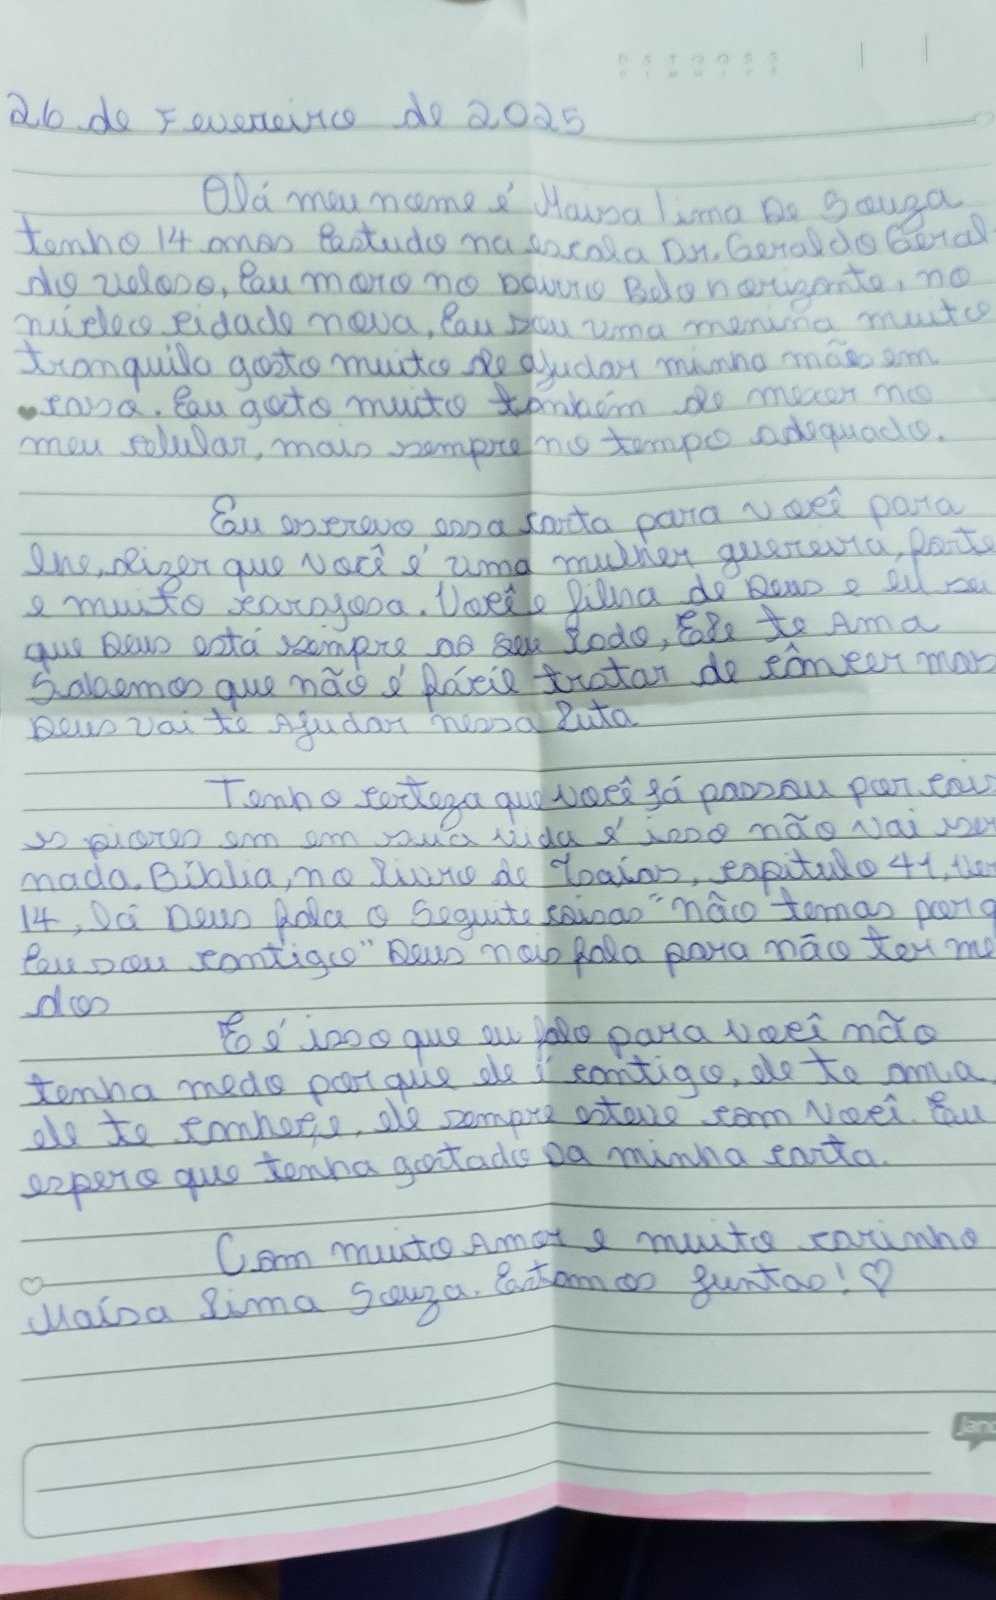 26 de Fevereiro de 2025
Olá meu nome é Maisa lima De Souza
tenho 14 anos Estudo na escola Dr. Geraldo Geral-
do veloso, Eu moro no bairro Belo horizonte, no
núcleo cidade nova, Eu sou uma menina muito
tranquila gosto muito de ajudar minha mãe em
casa. Eu goto muito também de mexer no
meu celular, mais sempre no tempo adequado.
Eu escrevo essa carta para você para
lhe, dizer que você é uma mulher guereira, forte
e muito corajosa. Você e filha de Deus e eu sei
que Deus está sempre ao seu lado, Ele te Ama
Sabemos que não é fácil tratar de câncer mas
Deus vai te Ajudar nessa luta
Tenho certeza que você já passou por cois
as piores em em sua vida é isso não vai ser
nada. Bíblia, no livro de Isaías, capitulo 41, ver
14, lá Deus fala o Seguite coisas "não temas porq
Eu sou contigo" Deus nois fala para não ter me
dos
E é isso que eu falo para você não
tenha medo porque ele é contigo, ele te ama
ele te conhece, ele sempre esteve com você. Eu
espero que tenha gostado Da minha carta.
Com muito Amor e muito carinho
Maísa lima Souza. Estamos juntas! ♡
Jand